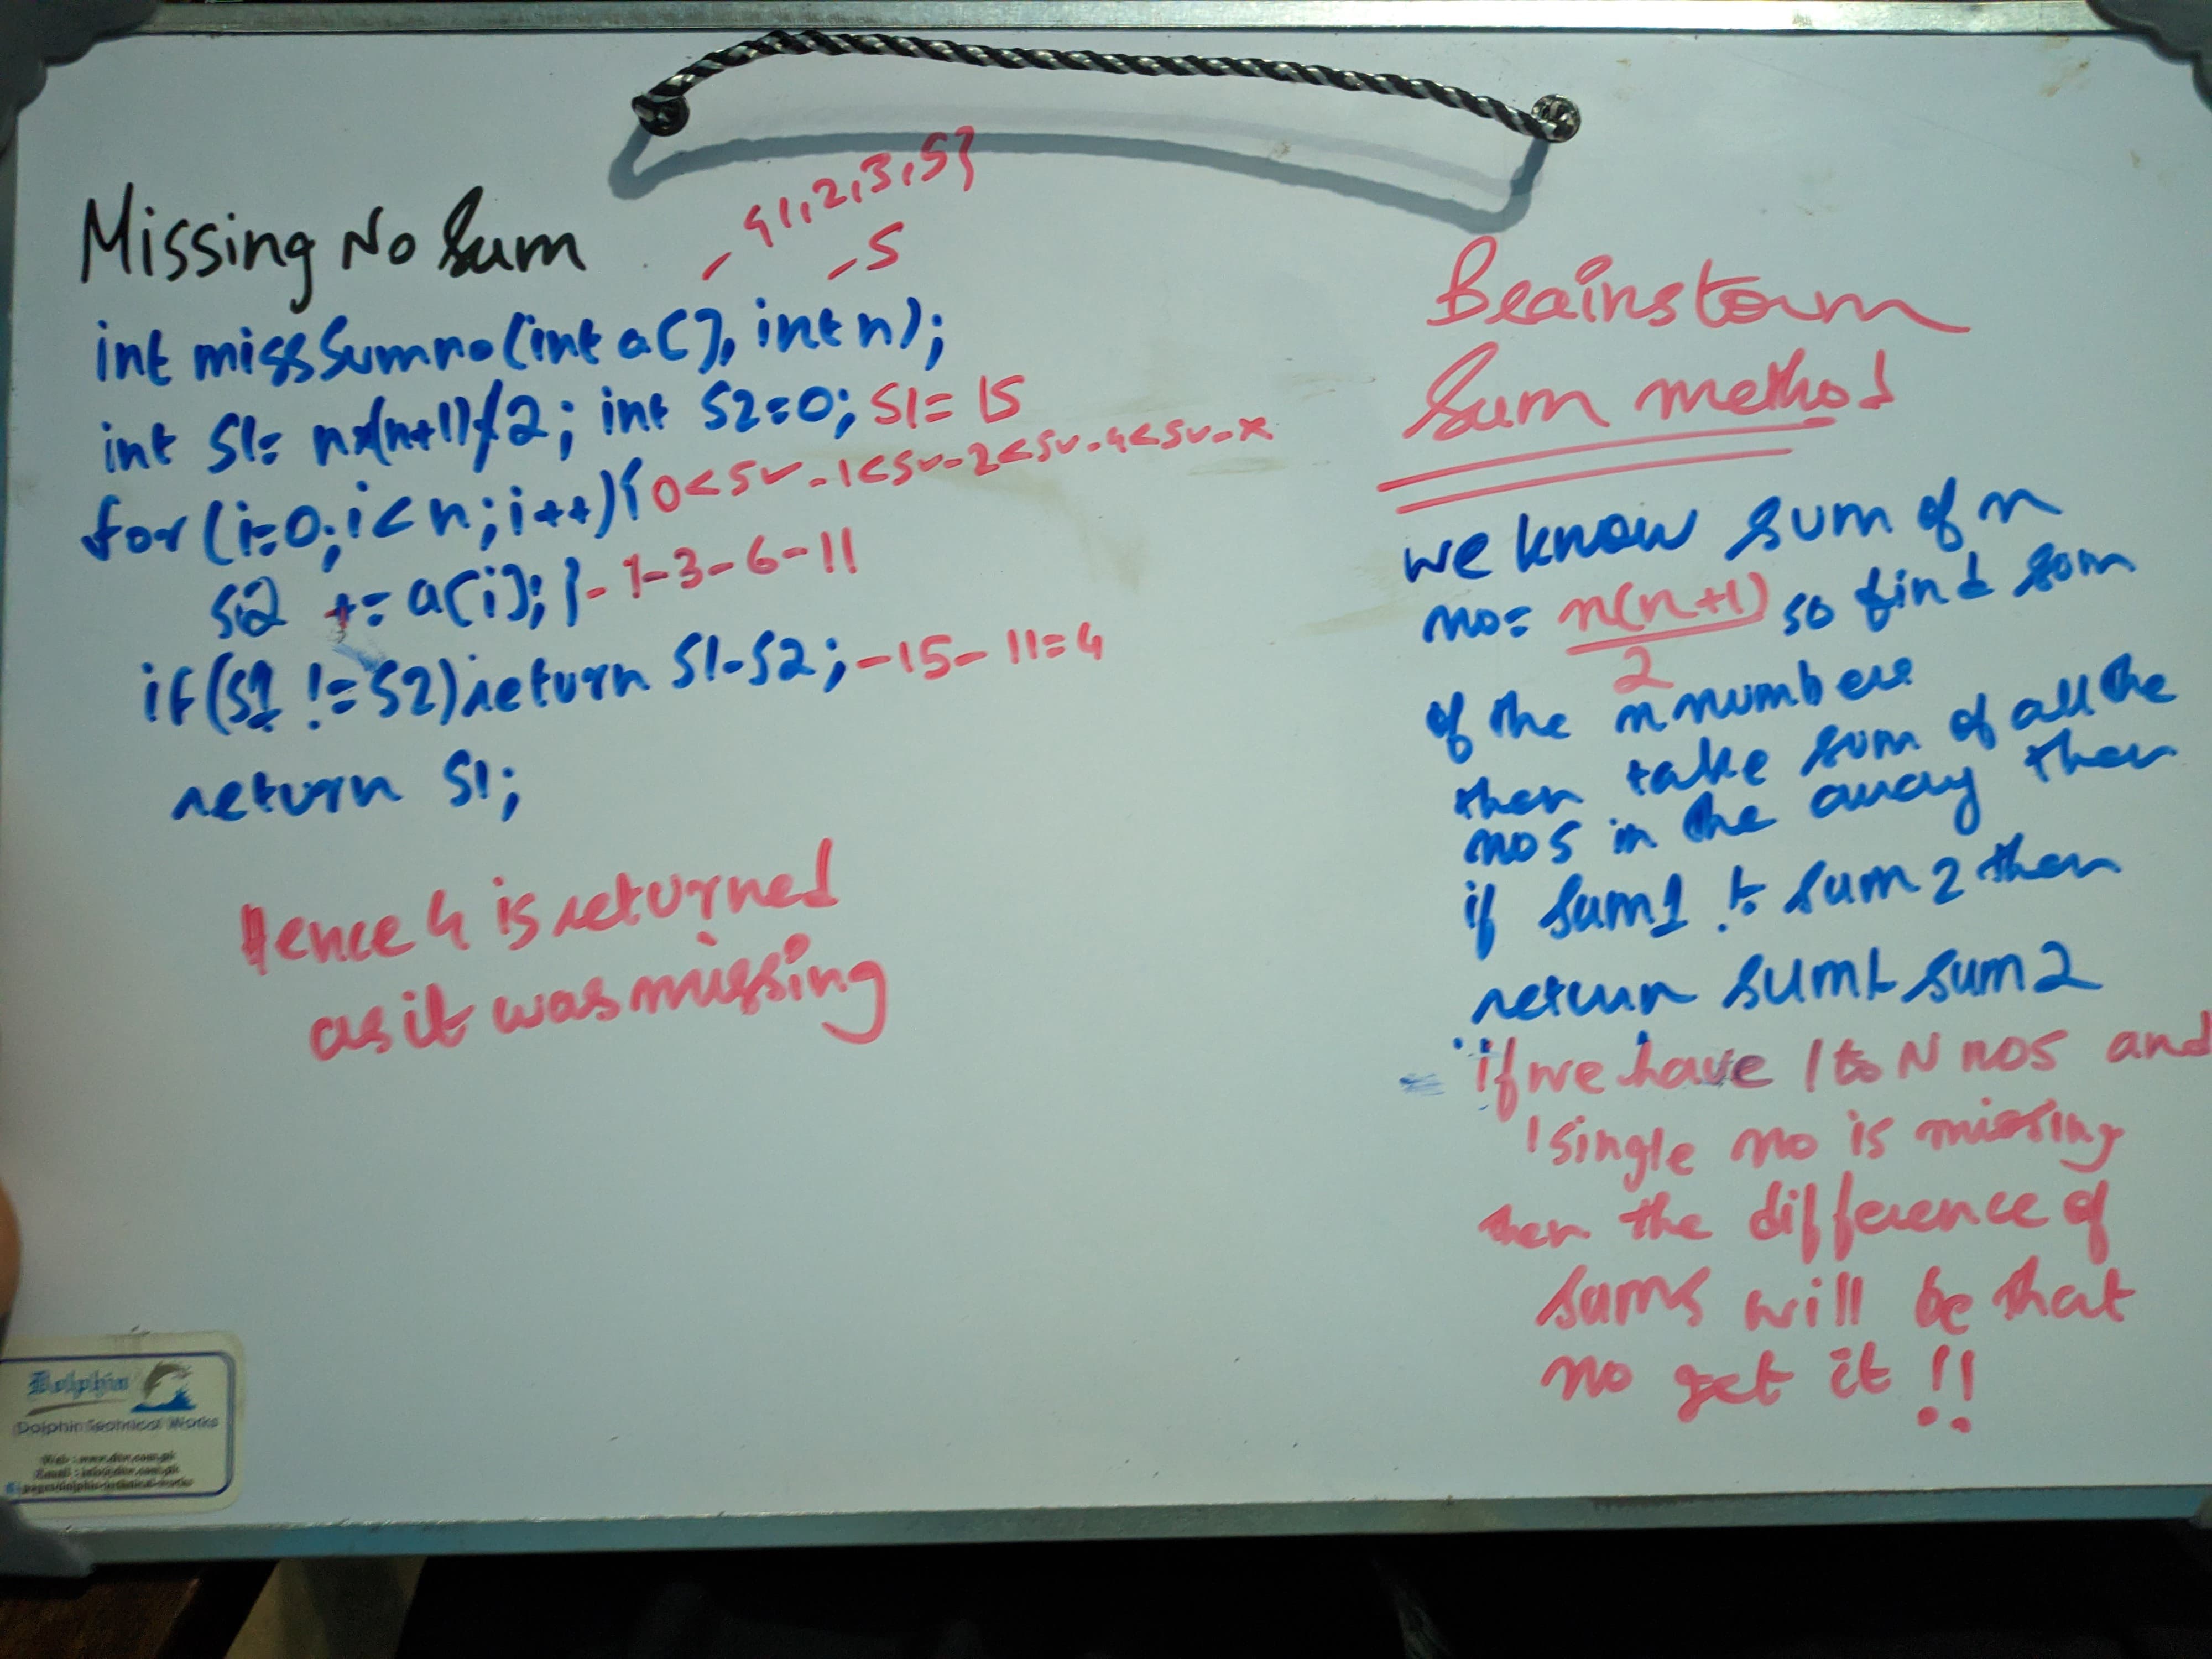 Missing No Sum
{1,2,3,5}
5
int missSumno(int a[], int n);
int S1= n*(n+1)/2; int S2=0; S1= 15
for(i=0;i<n;i++){ 0<5✓-1<5✓-2<5✓-4<5✓-x
S2 += a[i]; }-1-3-6-11
if(S1 != S2)return S1-S2;-15-11=4
return S1;
Hence 4 is returned
as it was missing
Brainstorm
Sum method
we know sum of n
no= n(n+1)/2 so find som
of the n numbers
then take sum of all the
nos in the array then
if sum1 != sum2 then
return sum1-sum2
if we have 1 to N nos and
1 single no is missing
then the difference of
sums will be that
no get it !!
Dolphin
Dolphin Technical Works
Web : www.dtw.com.pk
Email : info@dtw.com.pk